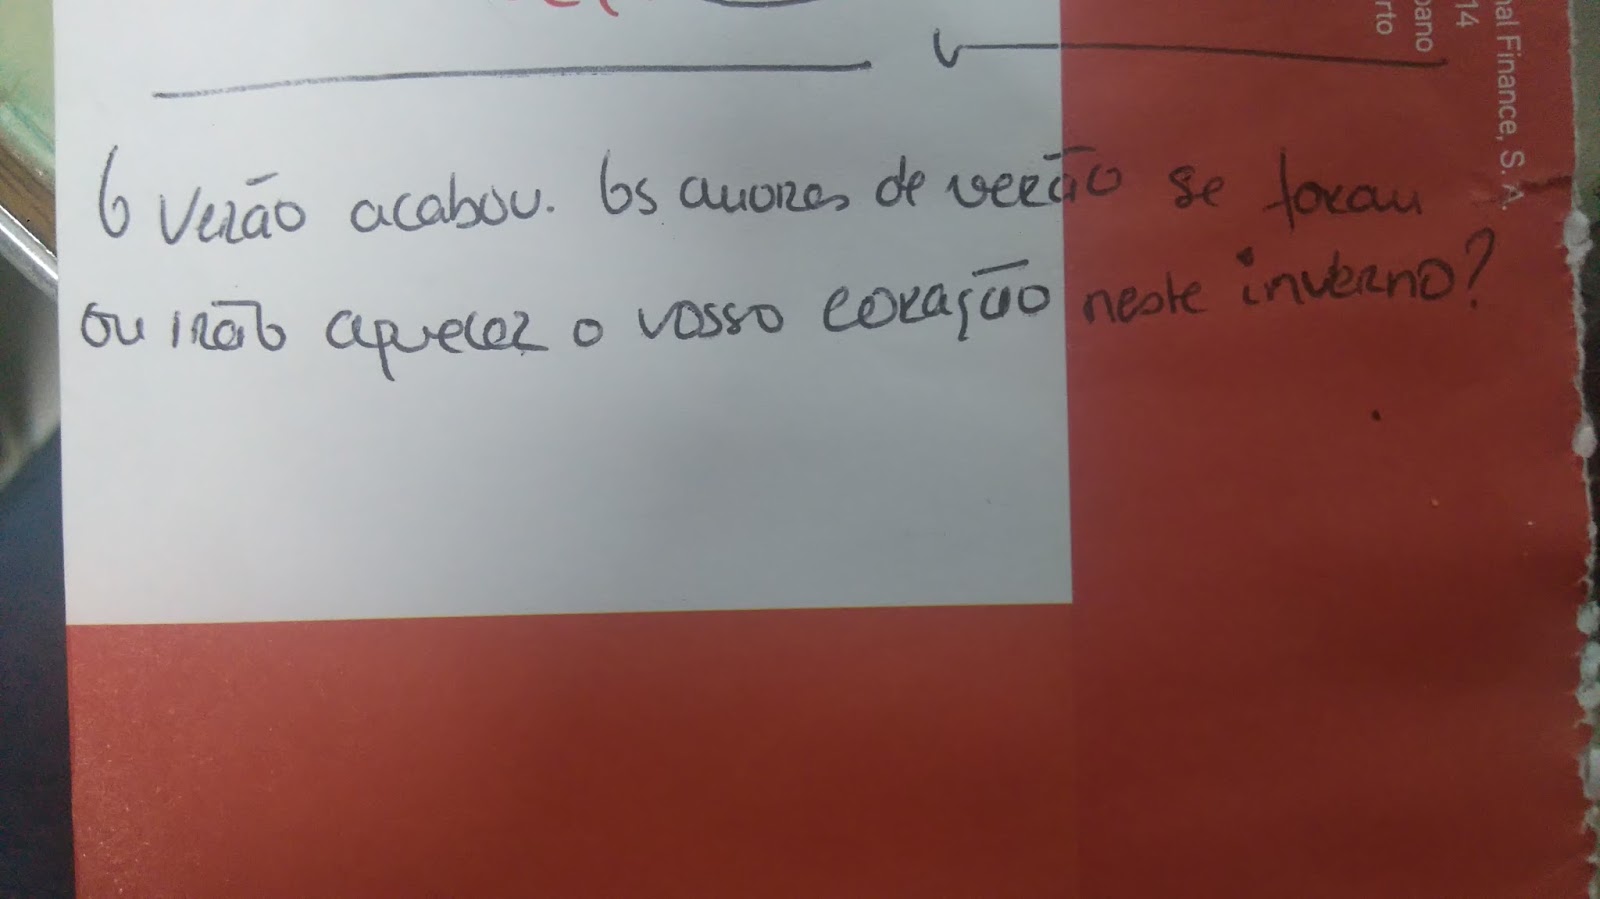 O Verão acabou. Os amores de verão se foram
ou irão aquecer o vosso coração neste inverno?
nal Finance, S. A.
14
bano
rto